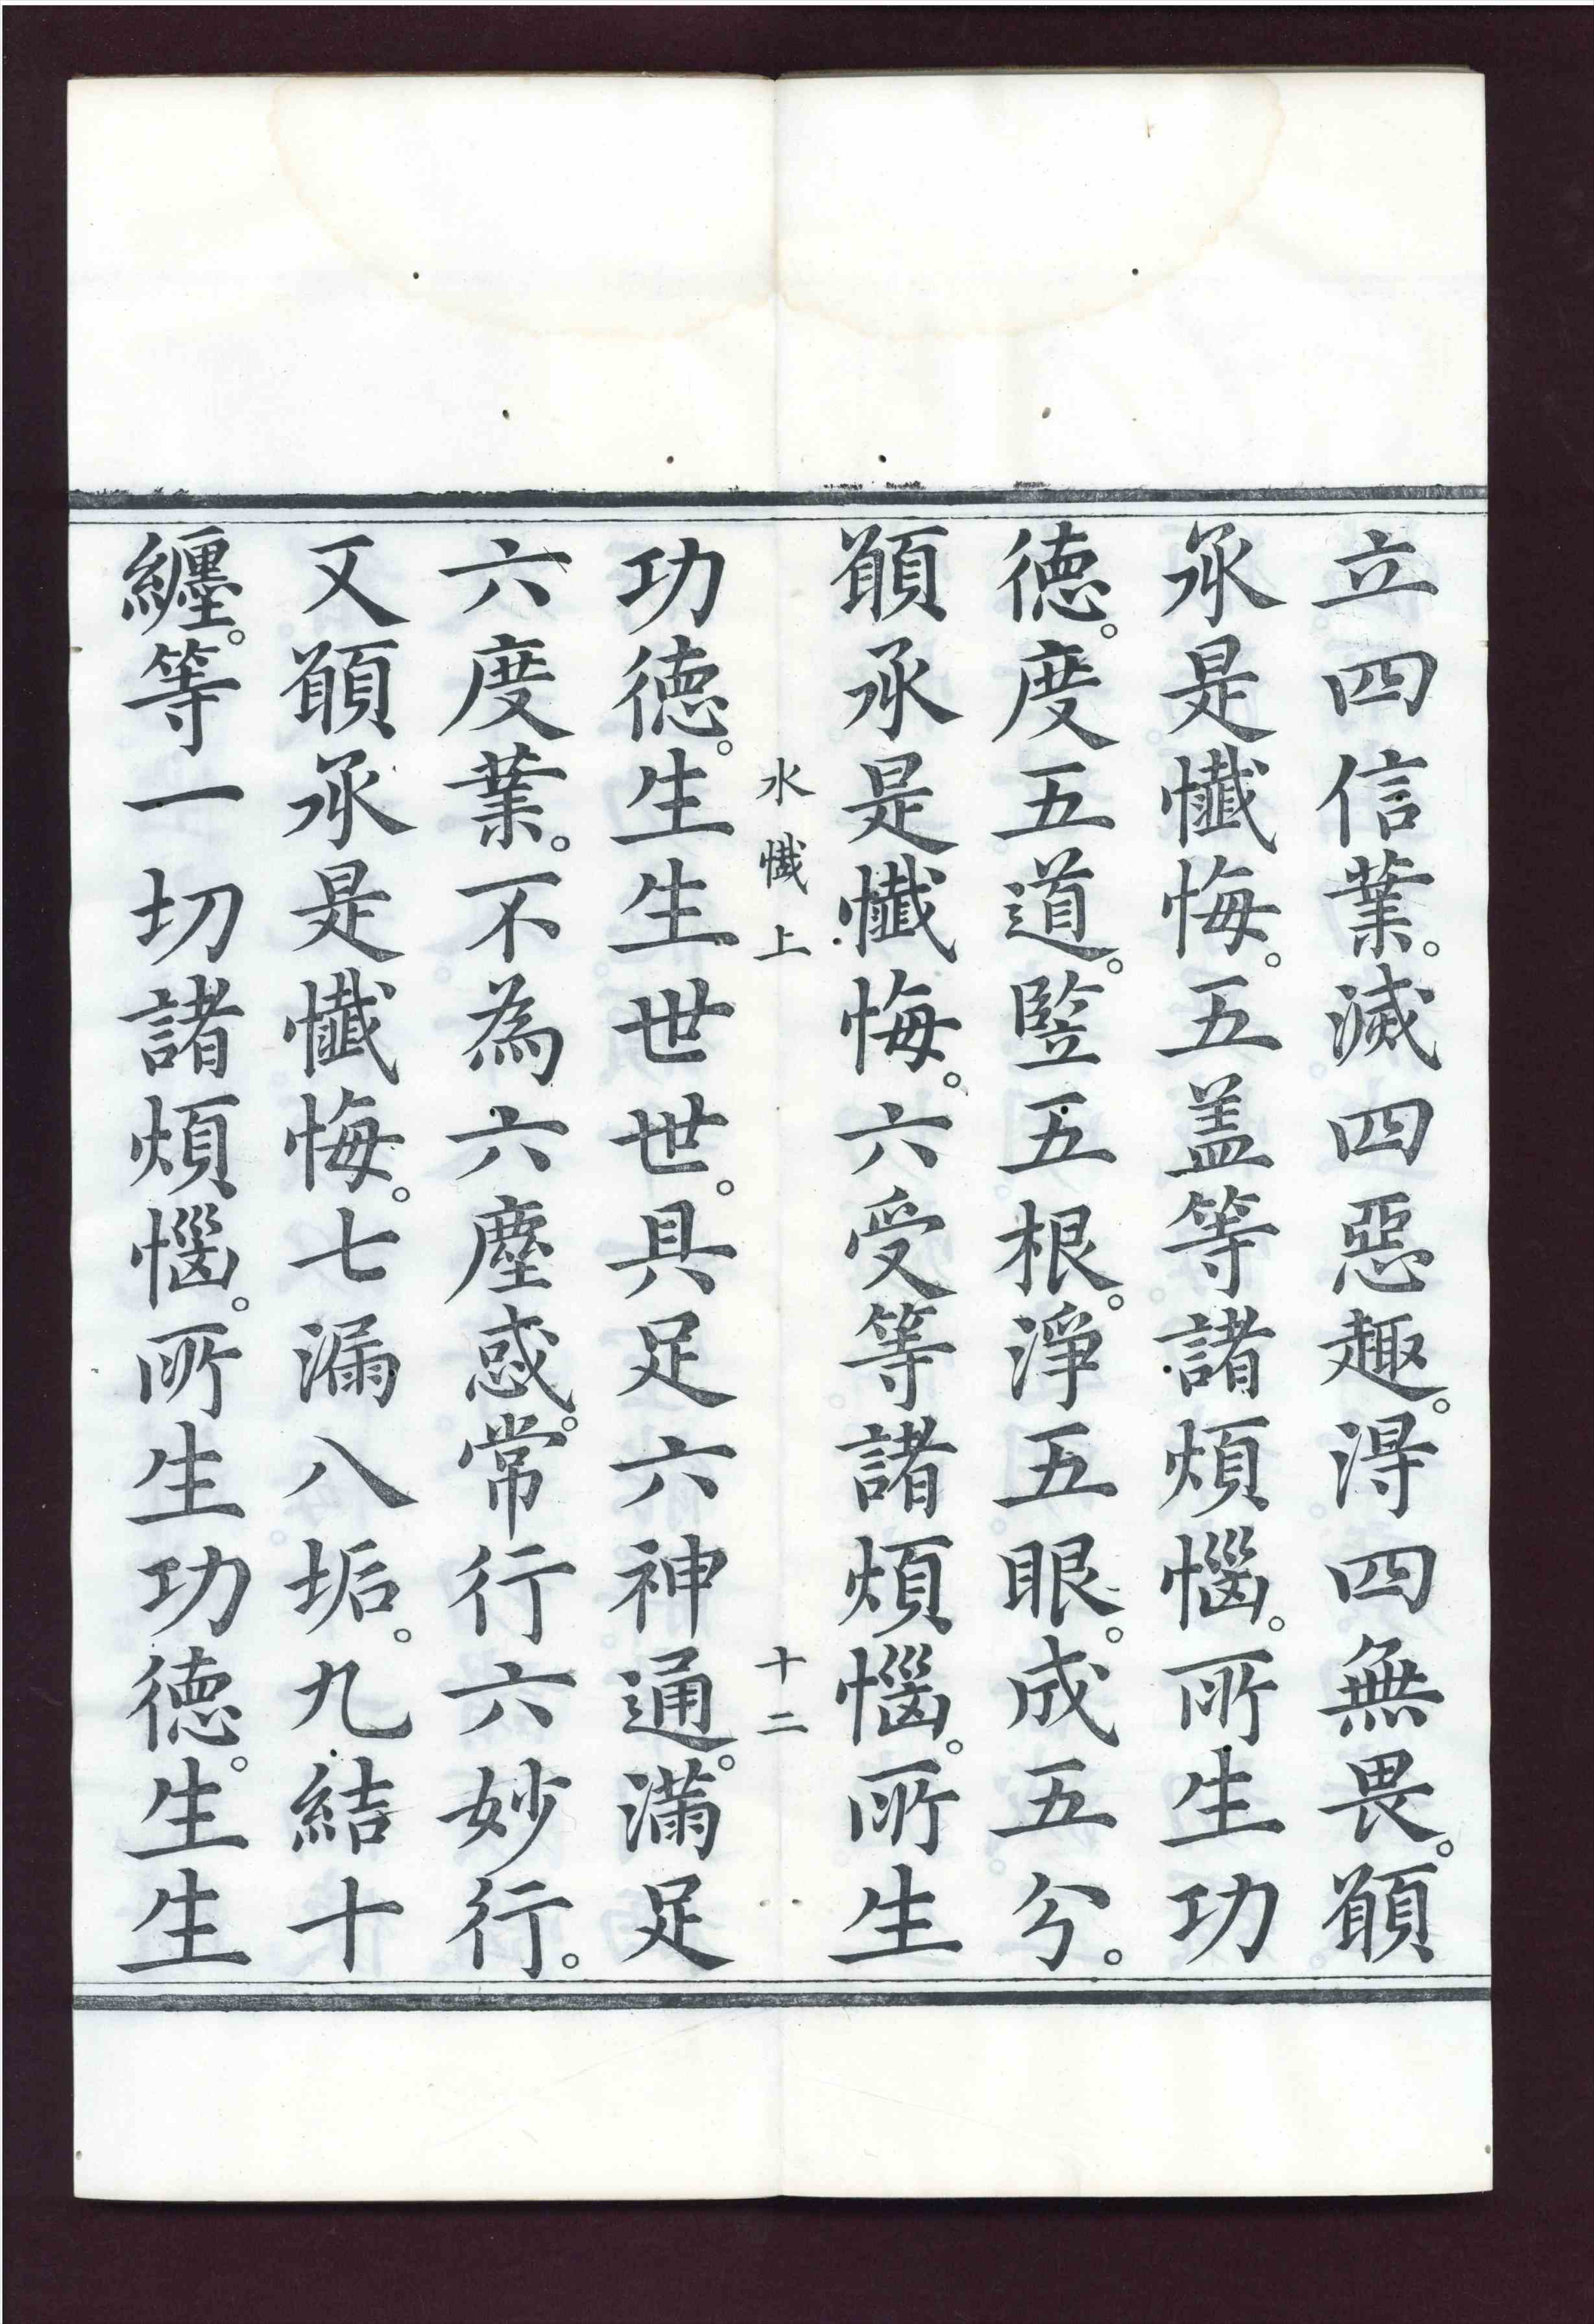 立四信業。滅四惡趣。得四無畏。願
承是懺悔。五盖等諸煩惱。所生功
德。度五道。竪五根。淨五眼。成五分。
願承是懺悔。六受等諸煩惱。所生
水懺上 十二
功德。生生世世。具足六神通。滿足
六度業。不為六塵惑。常行六妙行。
又願承是懺悔。七漏八垢。九結十
纏。等一切諸煩惱。所生功德。生生